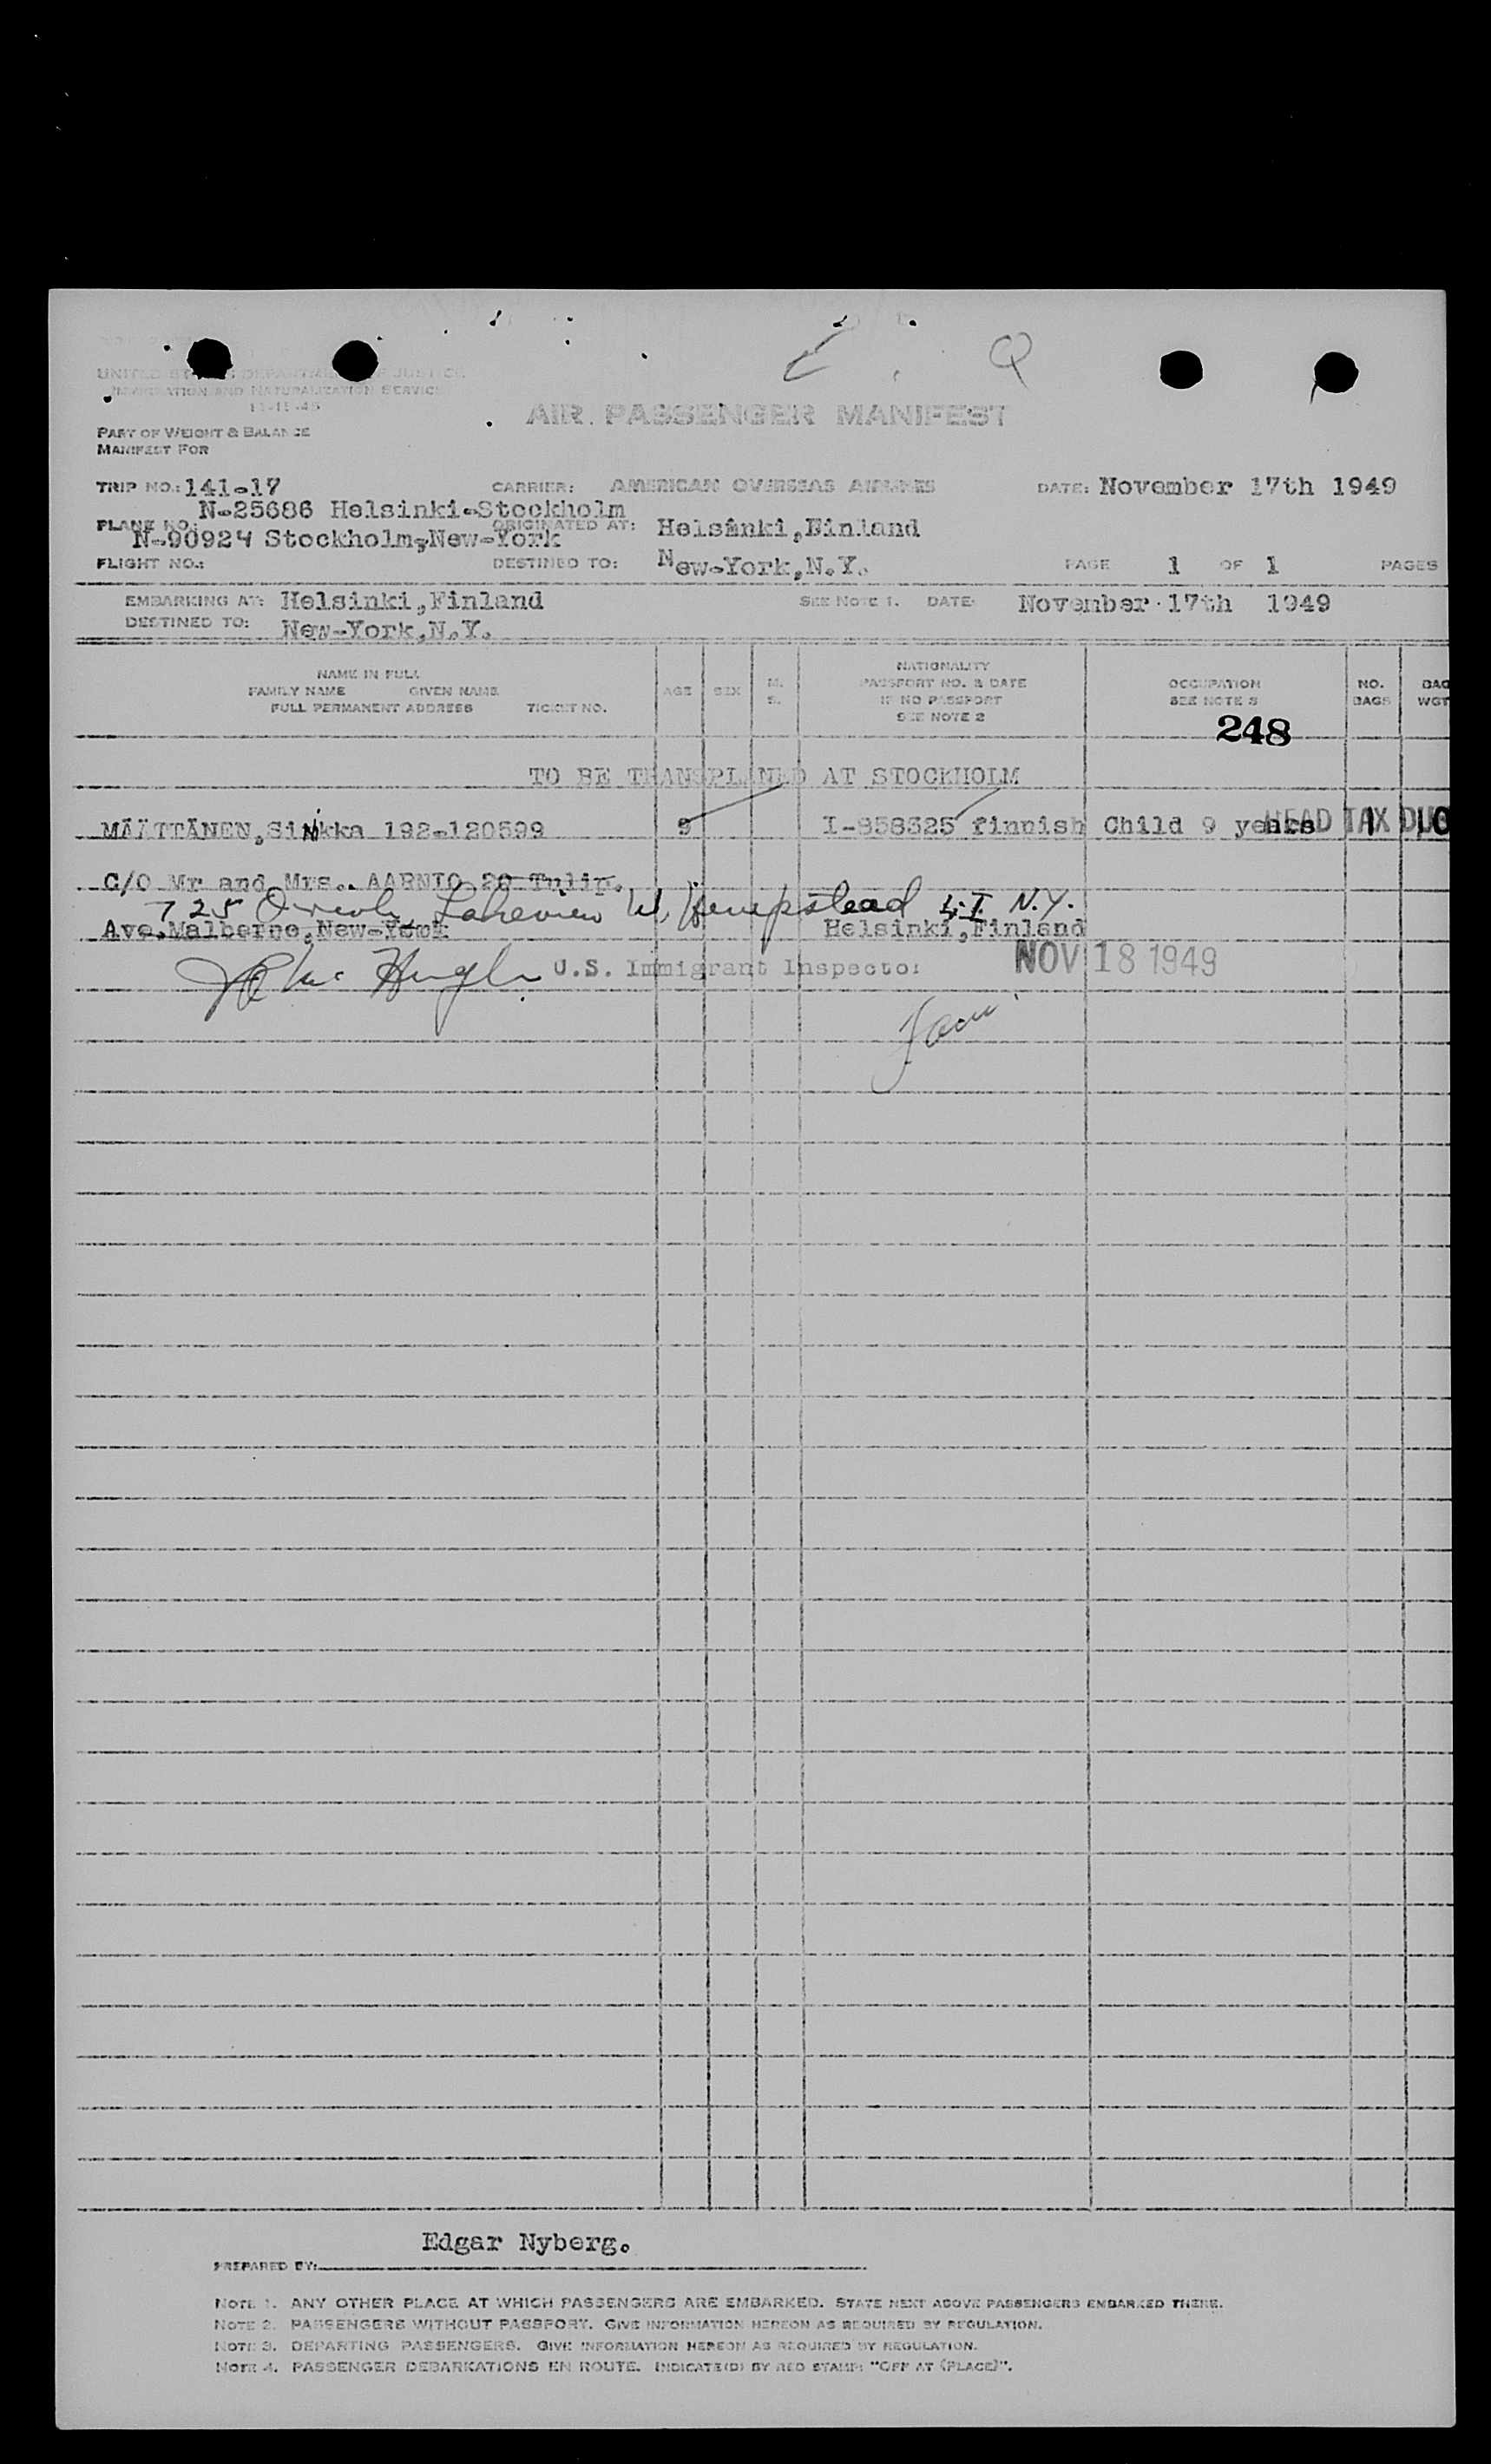 UNITED STATES DEPARTMENT OF JUSTICE
IMMIGRATION AND NATURALIZATION SERVICE
11-15-45
AIR PASSENGER MANIFEST
PART OF WEIGHT & BALANCE
MANIFEST FOR
TRIP NO.: 141-17 CARRIER: AMERICAN OVERSEAS AIRLINES DATE: November 17th 1949
N-25686 Helsinki-Stockholm
PLANE NO.: ORIGINATED AT: Helsinki,Finland
N-90924 Stockholm-New-York
FLIGHT NO.: DESTINED TO: New-York,N.Y. PAGE 1 OF 1 PAGES
EMBARKING AT: Helsinki,Finland SEE NOTE 1. DATE: November 17th 1949
DESTINED TO: New-York,N.Y.
NAME IN FULL
FAMILY NAME GIVEN NAME
FULL PERMANENT ADDRESS TICKET NO.
AGE SEX M. S.
NATIONALITY
PASSPORT NO. & DATE
IF NO PASSPORT
SEE NOTE 2
OCCUPATION
SEE NOTE 3
NO. BAGS
BAG WGT
248
TO BE TRANSPLANED AT STOCKHOLM
MÄÄTTÄNEN,Sinkka 192-120599 9 I-858325 finnish Child 9 years 1 10
HEAD TAX DUE
C/O Mr and Mrs. AARNIO 20 Tulip.
725 Lakeview W. Hempstead L.I. N.Y.
Ave.Malberne,New-York Helsinki,Finland
U.S. Immigrant Inspector NOV 18 1949
Edgar Nyberg.
PREPARED BY:
NOTE 1. ANY OTHER PLACE AT WHICH PASSENGERS ARE EMBARKED. STATE NEXT ABOVE PASSENGERS EMBARKED THERE.
NOTE 2. PASSENGERS WITHOUT PASSPORT. GIVE INFORMATION HEREON AS REQUIRED BY REGULATION.
NOTE 3. DEPARTING PASSENGERS. GIVE INFORMATION HEREON AS REQUIRED BY REGULATION.
NOTE 4. PASSENGER DEBARKATIONS EN ROUTE. INDICATE(D) BY RED STAMP: "OFF AT (PLACE)".